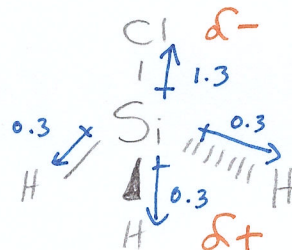 Cl δ-
1.3
0.3 Si 0.3
H 0.3 H
H δ+